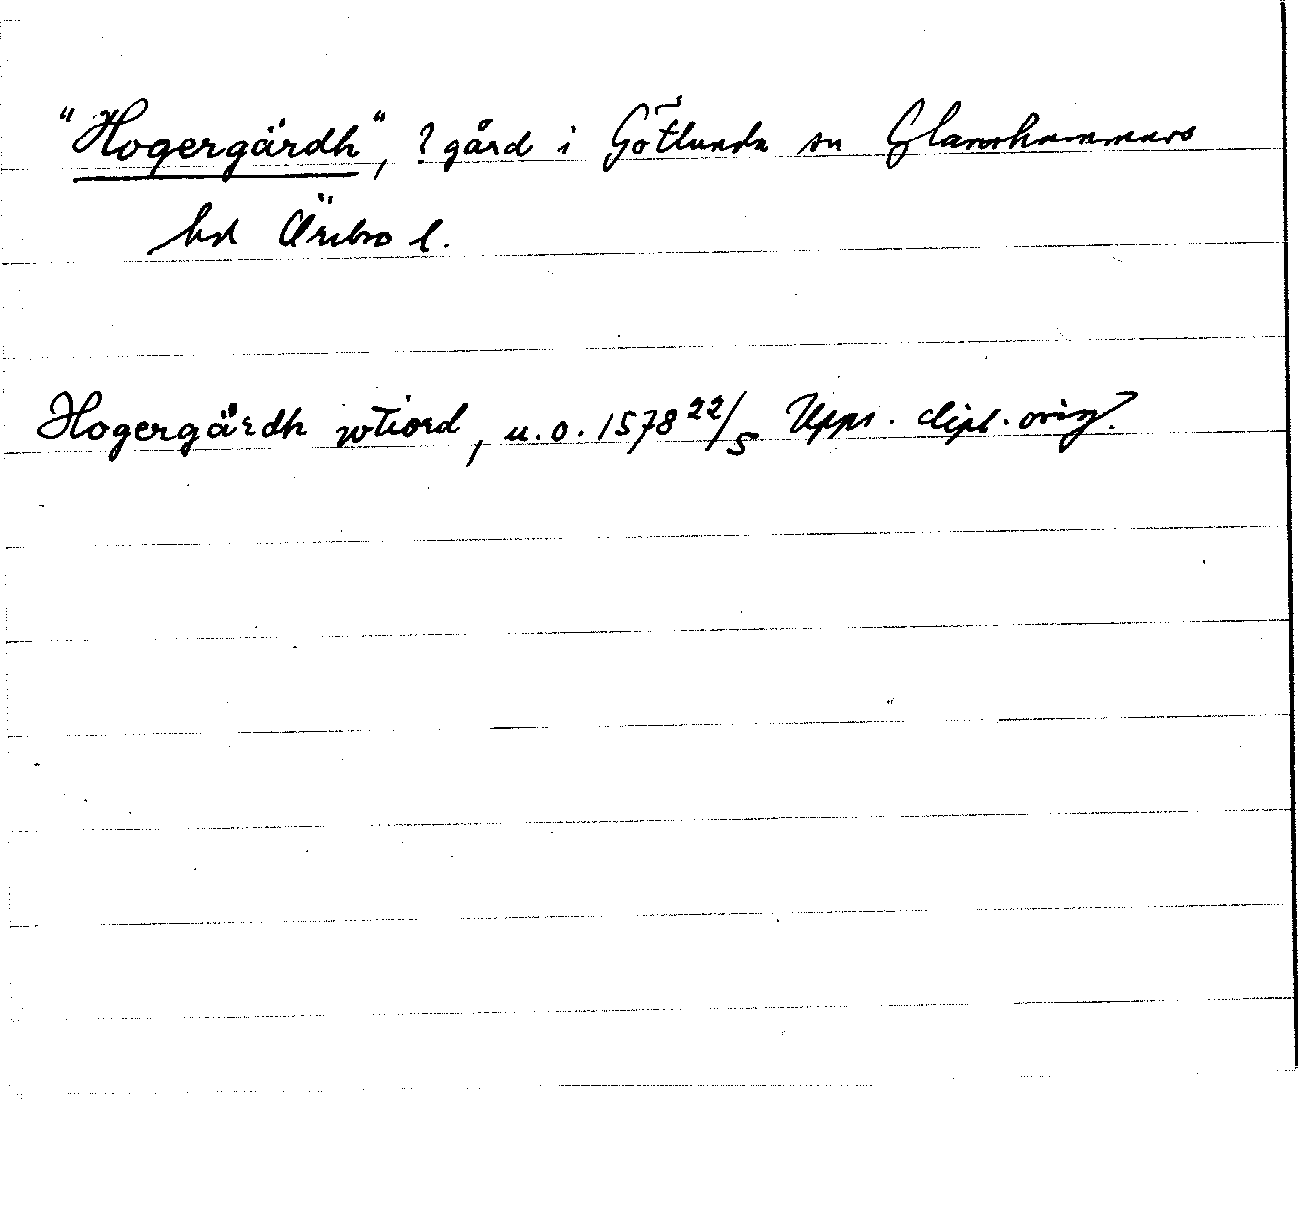 "Hogergärdh", ? gård i Götlunda sn Glanshammars
hd Örebro l.
Hogergärdh wtiord, u.o. 1578 22/5 Upps. dipl. orig.